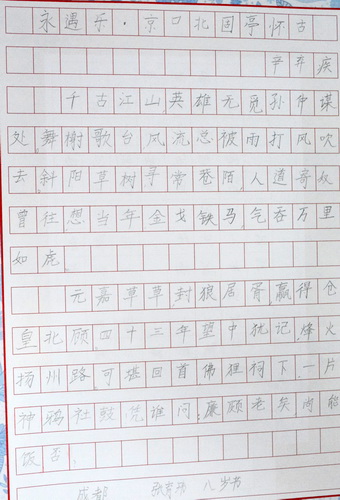 永遇乐·京口北固亭怀古
辛弃疾
千古江山,英雄无觅孙仲谋
处.舞榭歌台,风流总被雨打风吹
去.斜阳草树,寻常巷陌,人道寄奴
曾住.想当年,金戈铁马,气吞万里
如虎.
元嘉草草,封狼居胥,赢得仓
皇北顾.四十三年,望中犹记,烽火
扬州路.可堪回首,佛狸祠下,一片
神鸦社鼓.凭谁问:廉颇老矣,尚能
饭否.
成都 八岁书